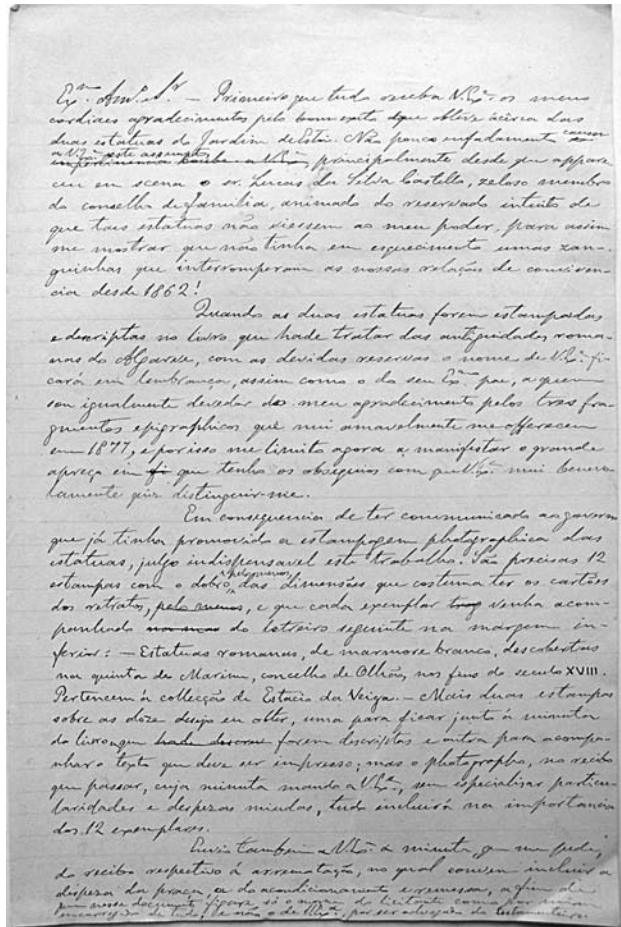 Exmo. Amo. Sr. — Primeiro que tudo receba V. Exa. os meus
cordiaes agradecimentos pelo bom exito que obteve ácerca das
duas estatuas do Jardim de Estoi. Não pouco enfadamento causou
a V. Exa. este assumpto, principalmente desde que appare
ceu em scena o sr. Lucas da Silva Castello, zeloso membro
do conselho de familia, animado do reservado intuito de
que taes estatuas não viessem ao meu poder, para assim
me mostrar que não tinha em esquecimento umas zan-
guinhas que interromperam as nossas relações de conviven-
cia desde 1862!
Quando as duas estatuas forem estampadas
e descriptas no livro que hade tratar das antiguidades roma-
nas do Algarve, com as devidas reservas o nome de V. Exa. fi-
cará em lembrança, assim como o do seu Exmo. pae, a quem
sou igualmente devedor do meu agradecimento pelos tres fra-
gmentos epigraphicos que mui amavelmente me offereceu
em 1877, e por isso me limito agora a manifestar o grande
apreço em que tenho os obsequios com que V. Exa. mui benevo
lamente quiz distinguir-me.
Em consequencia de ter communicado ao governo
que já tinha promovido a estampagem photographica das
estatuas, julgo indispensavel este trabalho. São precisas 12
estampas com o dobro, pelo menos, das dimensões que costuma ter os cartões
dos retratos, pelo menos, e que cada exemplar venha acom-
panhado do letreiro seguinte na margem in-
ferior: — Estatuas romanas, de marmore branco, descobertas
na quinta de Marim, concelho de Olhão, nos fins do seculo XVIII.
Pertencem á collecção de Estacio da Veiga. — Mais duas estampas
sobre as doze desejo eu obter, uma para ficar junto á minuta
do livro em que hade descrever forem descriptas e outra para acompa-
nhar o texto que deve ser impresso; mas o photographo, no recibo
que passar, cuja minuta mando a V. Exa., sem especialisar particu-
laridades e despezas miudas, tudo incluirá na importancia
dos 12 exemplares.
Envio tambem a V. Exa. a minuta, que me pede,
do recibo respectivo á arrematação, no qual convem incluir a
despeza da praça, a do acondicionamento e remessa, a fim de
que nesse documento figure só o nome do licitante como por mim
encarregado de tudo, e não o de V. Exa., por ser advogado da testamenteira